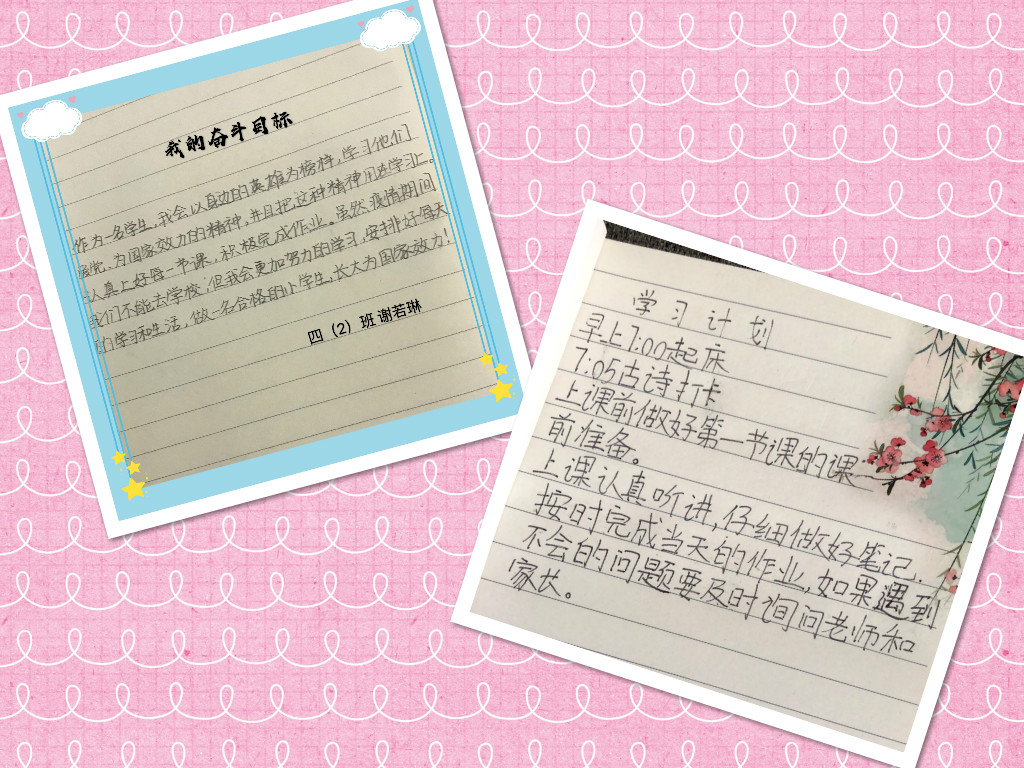 我的奋斗目标
作为一名学生，我会以身边的英雄为榜样，学习他们
为国家效力的精神，并且把这种精神用进学习上。
认真上好每一节课，积极完成作业。虽然疫情期间
我们不能去学校，但我会更加努力的学习，安排好每天
的学习和生活，做一名合格的小学生，长大为国家效力！
四（2）班 谢若琳
学习计划
早上7:00起床
7.05古诗打卡
上课前做好第一节课的课
前准备。
上课认真听讲，仔细做好笔记，
按时完成当天的作业，如果遇到
不会的问题要及时询问老师和
家长。